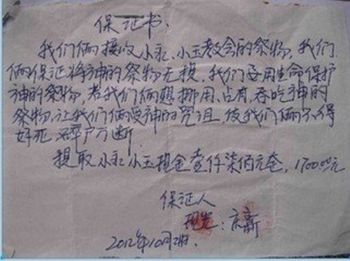 保证书.
我们俩接收小永,小玉教会的祭物,我们
俩保证将神的祭物无损,我们要用生命保护
神的祭物,若我们俩想挪用,占有,吞吃神的
祭物,让我们俩受神的咒诅,使我们俩不得
好死 碎尸万断.
提取小永小玉现金壹仟柒佰元整, 1700.00元
保证人
:高新
2012年10月2日.